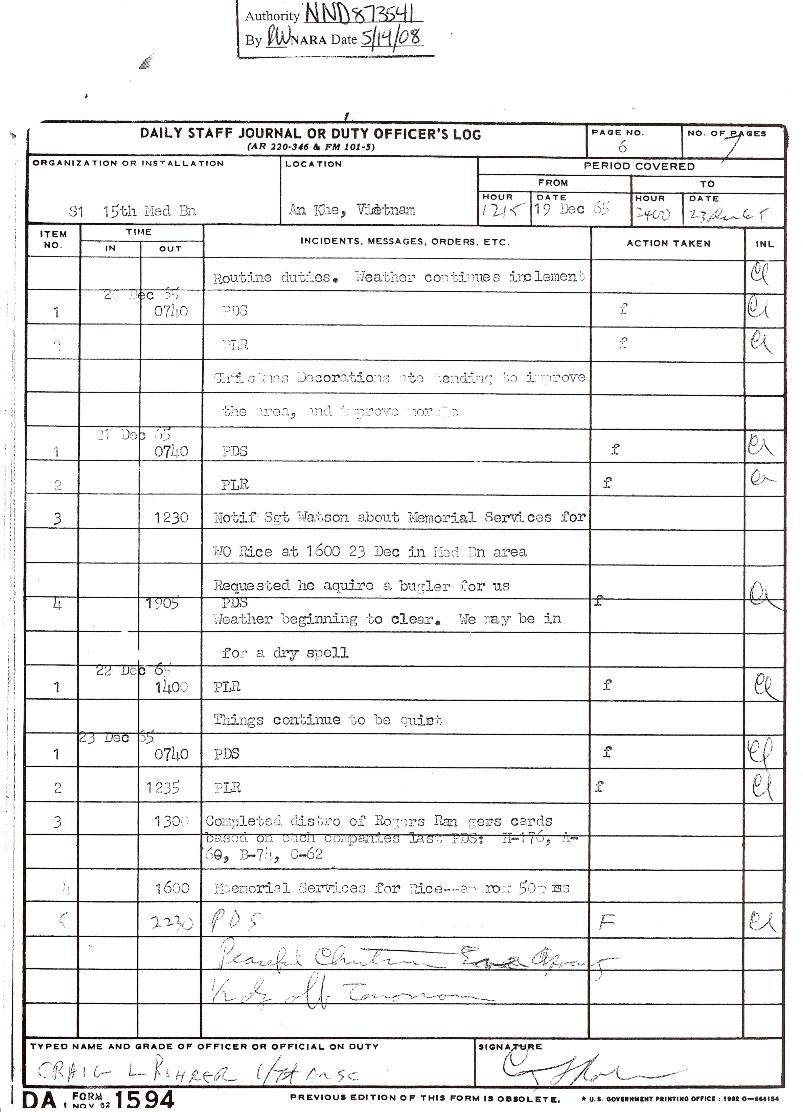 Authority NND873541
By RW NARA Date 5/14/08
DAILY STAFF JOURNAL OR DUTY OFFICER'S LOG
(AR 220-346 & FM 101-5)
PAGE NO.
6
NO. OF PAGES
7
ORGANIZATION OR INSTALLATION
S1 15th Med Bn
LOCATION
An Khe, Vietnam
PERIOD COVERED
FROM
TO
HOUR
1215
DATE
19 Dec 65
HOUR
2400
DATE
23 Dec 65
ITEM NO.
TIME
IN
OUT
INCIDENTS, MESSAGES, ORDERS, ETC.
ACTION TAKEN
INL
Routine duties. Weather continues inclement
20 Dec 65
1 0740 PDS f
2 PLR f
Decorations ate tending to improve
the area, and improve morale
21 Dec 65
1 0740 PDS f
2 PLR f
3 1230 Notif Sgt Watson about Memorial Services for
WO Rice at 1600 23 Dec in Med Bn area
Requested he aquire a bugler for us
4 1905 PDS f
Weather beginning to clear. We may be in
for a dry spell
22 Dec 65
1 1400 PLR f
Things continue to be quiet
23 Dec 65
1 0740 PDS f
2 1235 PLR f
3 1300 Completed distro of Rogers Ran gers cards
based on each companies last PDS: H-176, A-
60, B-74, C-62
4 1600 Memorial Services for Rice
5 2230 PDS F
Peaceful
1/2 day off Tomorrow
TYPED NAME AND GRADE OF OFFICER OR OFFICIAL ON DUTY
CRAIG L ROHRER 1/Lt MSC
SIGNATURE
DA FORM 1594
1 NOV 62
PREVIOUS EDITION OF THIS FORM IS OBSOLETE.
* U.S. GOVERNMENT PRINTING OFFICE : 1962 O-664154